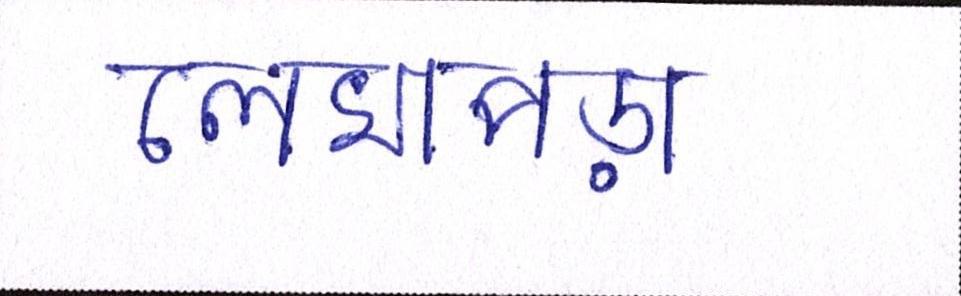 লেখাপড়া